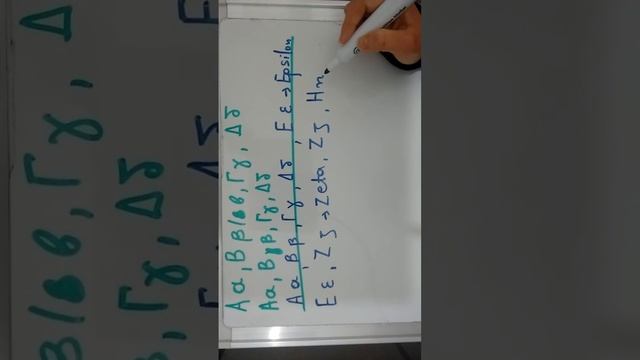 Αα, Ββ/ϐϐ, Γγ, Δδ
Αα, Ββ, Γγ, Δδ
Αα, Ββ, Γγ, Δδ, Εε → Epsilon
Εε, Ζζ → Zeta, Ζζ, Ηη